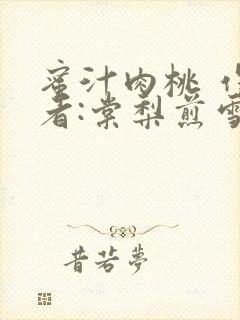 蜜汁肉桃 作
者:棠梨煎雪
昔若夢